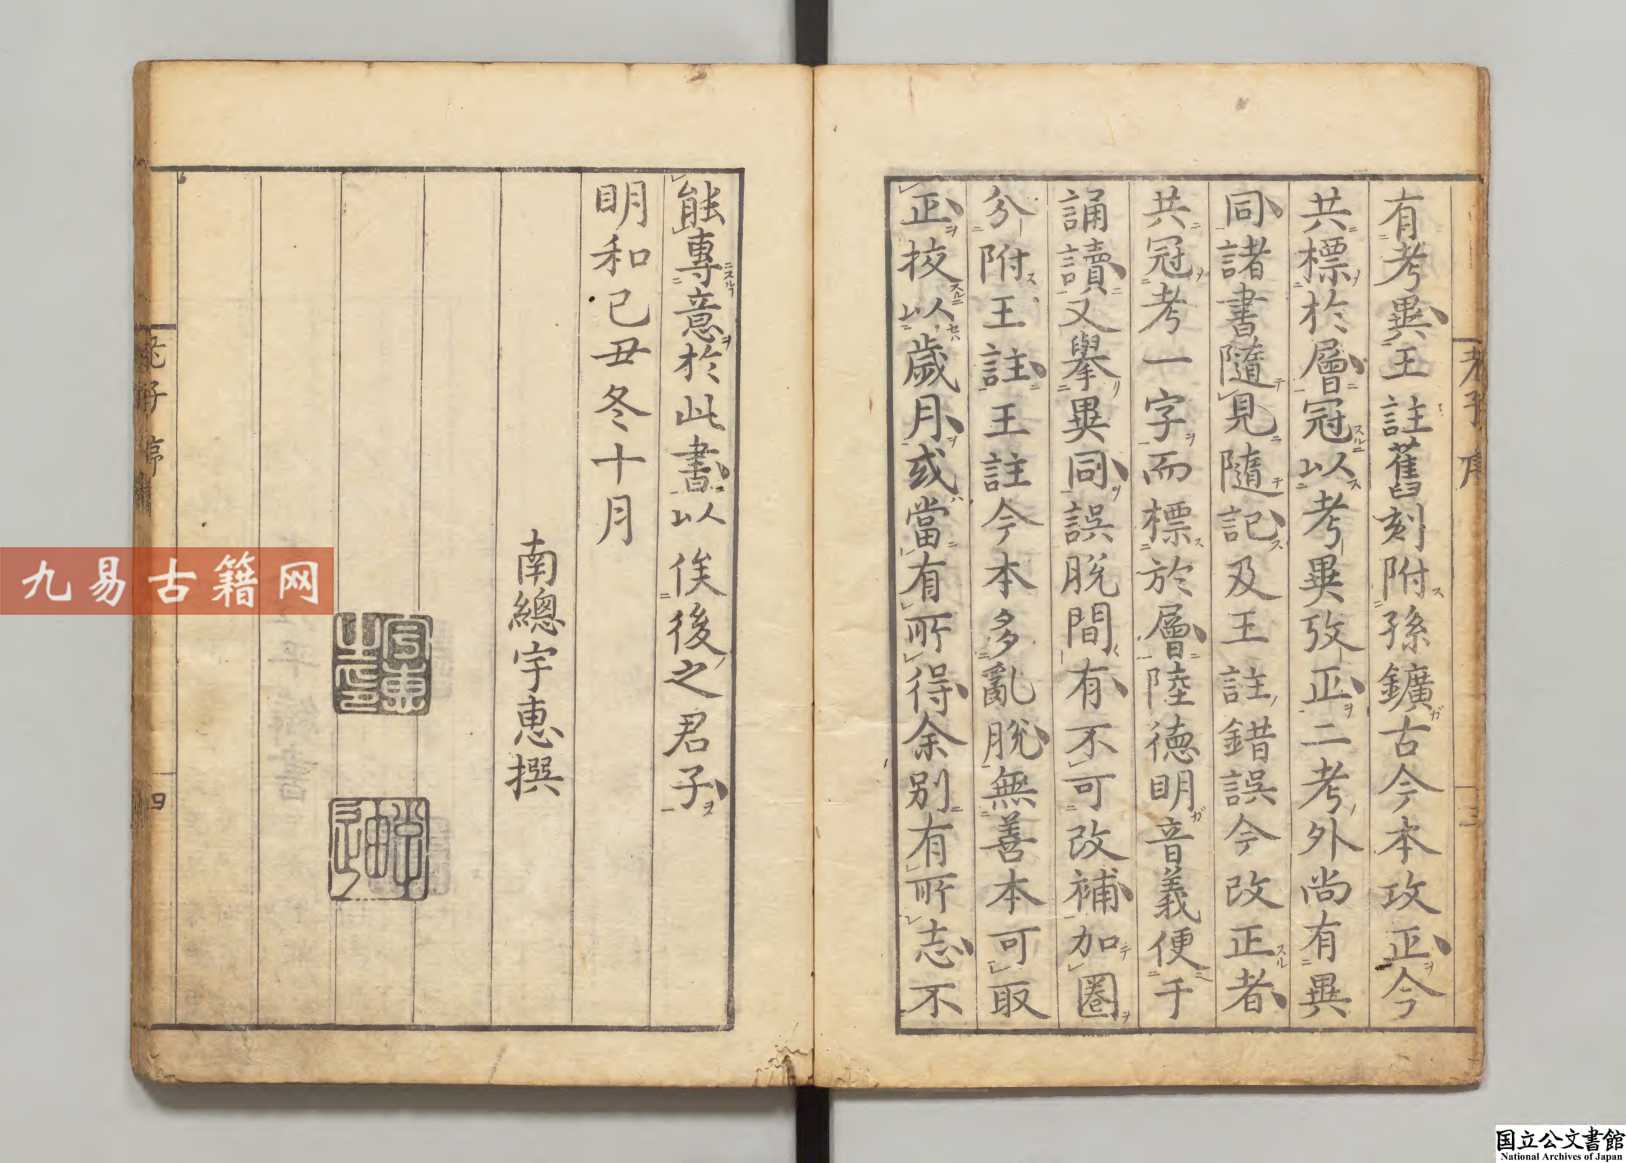 有考異王註舊刻附孫鑛古今本攷正今
共標於層冠以考異攷正二考外尚有異
同諸書隨見隨記及王註錯誤今改正者
共冠考一字而標於層陸德明音義便于
誦讀又擧異同誤脫間有不可改補加圈
分附王註王註今本多亂脫無善本可取
正挍以歲月或當有所得余別有所志不
能專意於此書以俟後之君子
明和己丑冬十月
南總宇惠撰
老子序
三
四
九易古籍网
国立公文書館
National Archives of Japan